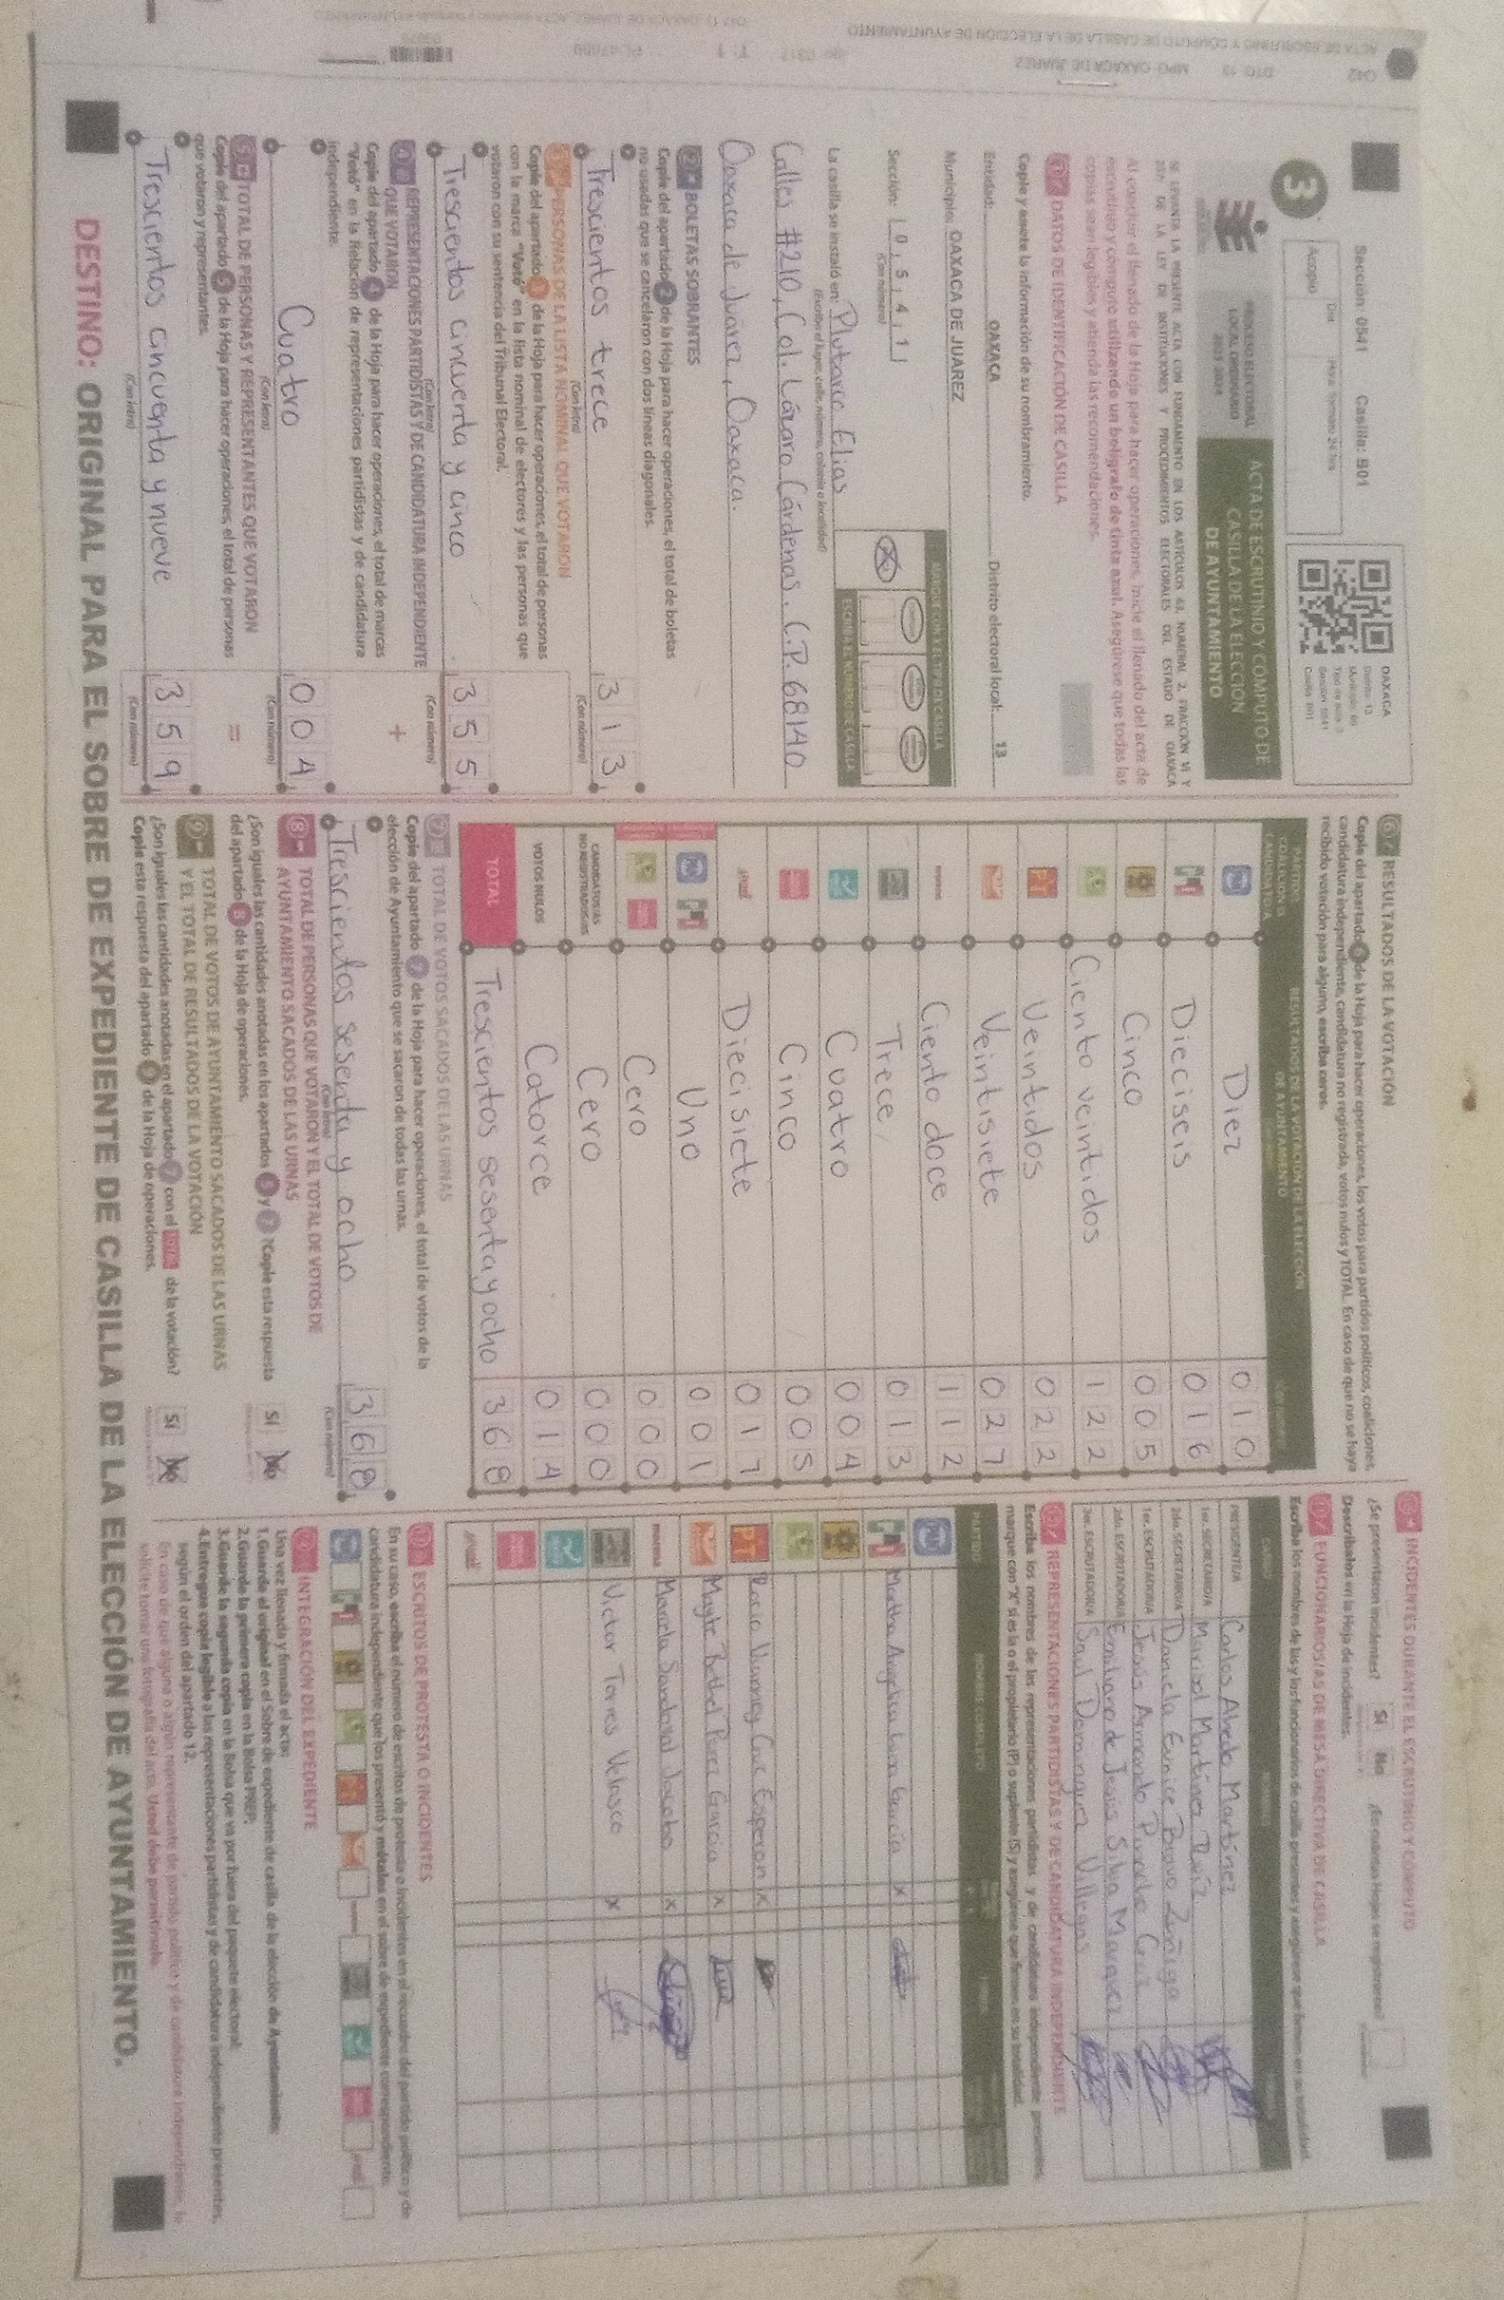 Sección: 0541 Casilla: B01
3
Acopio
PROCESO ELECTORAL
LOCAL ORDINARIO
2023-2024
ACTA DE ESCRUTINIO Y CÓMPUTO DE
CASILLA DE LA ELECCIÓN
DE AYUNTAMIENTO
OAXACA
SE LEVANTA LA PRESENTE ACTA CON FUNDAMENTO EN LOS ARTÍCULOS 43, NUMERAL 2, FRACCIÓN VI Y
DE LA LEY DE INSTITUCIONES Y PROCEDIMIENTOS ELECTORALES DEL ESTADO DE OAXACA
Al concluir el llenado de la Hoja para hacer operaciones, inicie el llenado del acta de
escrutinio y cómputo utilizando un bolígrafo de tinta azul. Asegúrese que todas las
copias sean legibles y atienda las recomendaciones.
DATOS DE IDENTIFICACIÓN DE CASILLA
Copie y anote la información de su nombramiento.
Entidad: OAXACA Distrito electoral local: 13
Municipio: OAXACA DE JUAREZ
Sección: 0541
(Con número)
MARQUE CON X EL TIPO DE CASILLA
ESCRIBA EL NÚMERO DE CASILLA
La casilla se instaló en: Plutarco Elias
(Escriba el lugar, calle, número, colonia o localidad)
Calles #210, Col. Lázaro Cárdenas. C.P. 68140
Oaxaca de Juárez, Oaxaca.
2 BOLETAS SOBRANTES
Copie del apartado 2 de la Hoja para hacer operaciones, el total de boletas
no usadas que se cancelaron con dos líneas diagonales.
Trescientos trece 313
(Con letra) (Con número)
PERSONAS DE LA LISTA NOMINAL QUE VOTARON
Copie del apartado 3 de la Hoja para hacer operaciones, el total de personas
con la marca "Votó" en la lista nominal de electores y las personas que
votaron con su sentencia del Tribunal Electoral.
Trescientos cincuenta y cinco 355
(Con letra) (Con número)
REPRESENTACIONES PARTIDISTAS Y DE CANDIDATURA INDEPENDIENTE
QUE VOTARON
Copie del apartado 4 de la Hoja para hacer operaciones, el total de marcas
"Votó" en la Relación de representaciones partidistas y de candidatura
independiente.
Cuatro 004
(Con letra) (Con número)
TOTAL DE PERSONAS Y REPRESENTANTES QUE VOTARON
Copie del apartado 5 de la Hoja para hacer operaciones, el total de personas
que votaron y representantes.
Trescientos cincuenta y nueve 359
(Con letra) (Con número)
6 RESULTADOS DE LA VOTACIÓN
Copie del apartado de la Hoja para hacer operaciones, los votos para partidos políticos, coaliciones,
candidatura independiente, candidatura no registrada, votos nulos y TOTAL. En caso de que no se haya
recibido votación para alguno, escriba ceros.
RESULTADOS DE LA VOTACIÓN DE LA ELECCIÓN
DE AYUNTAMIENTO
Diez 010
Dieciseis 016
Cinco 005
Ciento veintidos 122
PT Veintidos 022
Veintisiete 027
morena Ciento doce 112
Trece 013
Cuatro 004
Cinco 005
Diecisiete 017
Uno 001
Cero 000
CANDIDATOS/AS
NO REGISTRADOS/AS Cero 000
VOTOS NULOS Catorce 014
TOTAL Trescientos sesenta y ocho 368
TOTAL DE VOTOS SACADOS DE LAS URNAS
Copie del apartado 7 de la Hoja para hacer operaciones, el total de votos de la
elección de Ayuntamiento que se sacaron de todas las urnas.
Trescientos sesenta y ocho 368
(Con letra) (Con número)
8 TOTAL DE PERSONAS QUE VOTARON Y EL TOTAL DE VOTOS DE
AYUNTAMIENTO SACADOS DE LAS URNAS
¿Son iguales las cantidades anotadas en los apartados 5 y 7? Copie esta respuesta
del apartado 8 de la Hoja de operaciones. Sí No
9 TOTAL DE VOTOS DE AYUNTAMIENTO SACADOS DE LAS URNAS
Y EL TOTAL DE RESULTADOS DE LA VOTACIÓN
¿Son iguales las cantidades anotadas en el apartado 7 con el TOTAL de la votación?
Copie esta respuesta del apartado 9 de la Hoja de operaciones. Sí No
INCIDENTES DURANTE EL ESCRUTINIO Y CÓMPUTO
¿Se presentaron incidentes? Sí No ¿En cuántas Hojas se registraron?
Descríbalos en la Hoja de incidentes.
FUNCIONARIOS/AS DE MESA DIRECTIVA DE CASILLA
Escriba los nombres de las y los funcionarios de casilla presentes y asegúrese que firmen en su totalidad.
PRESIDENTE/A Carlos Abedo Martínez
1er. SECRETARIO/A Marisol Martínez Ruiz
2do. SECRETARIO/A Daniela Eunice Bravo Zuñiga
1er. ESCRUTADOR/A Jesús Armando
2do. ESCRUTADOR/A Emiliano de Jesús Silva
3er. ESCRUTADOR/A Saul Dominguez Villegas
REPRESENTACIONES PARTIDISTAS Y DE CANDIDATURA INDEPENDIENTE
Escriba los nombres de las representaciones partidistas y de candidatura independiente presentes,
marque con "X" si es la o el propietario (P) o suplente (S) y asegúrese que firmen en su totalidad.
PARTIDO NOMBRE COMPLETO
Martha Angelica Luna García X
PT Rocio Cruz Esperon X
Mayte Bethel Perez Garcia X
morena Mariela Sandoval X
Victor Torres Velasco X
ESCRITOS DE PROTESTA O INCIDENTES
En su caso, escriba el número de escritos de protesta o incidentes en el recuadro del partido político y de
candidatura independiente que los presentó y métalos en el sobre de expediente correspondiente.
INTEGRACIÓN DEL EXPEDIENTE
Una vez llenada y firmada el acta:
1. Guarde el original en el Sobre de expediente de casilla de la elección de Ayuntamiento;
2. Guarde la primera copia en la Bolsa PREP;
3. Guarde la segunda copia en la Bolsa que va por fuera del paquete electoral;
4. Entregue copia legible a las representaciones partidistas y de candidatura independiente presentes,
según el orden del apartado 12.
DESTINO: ORIGINAL PARA EL SOBRE DE EXPEDIENTE DE CASILLA DE LA ELECCIÓN DE AYUNTAMIENTO.